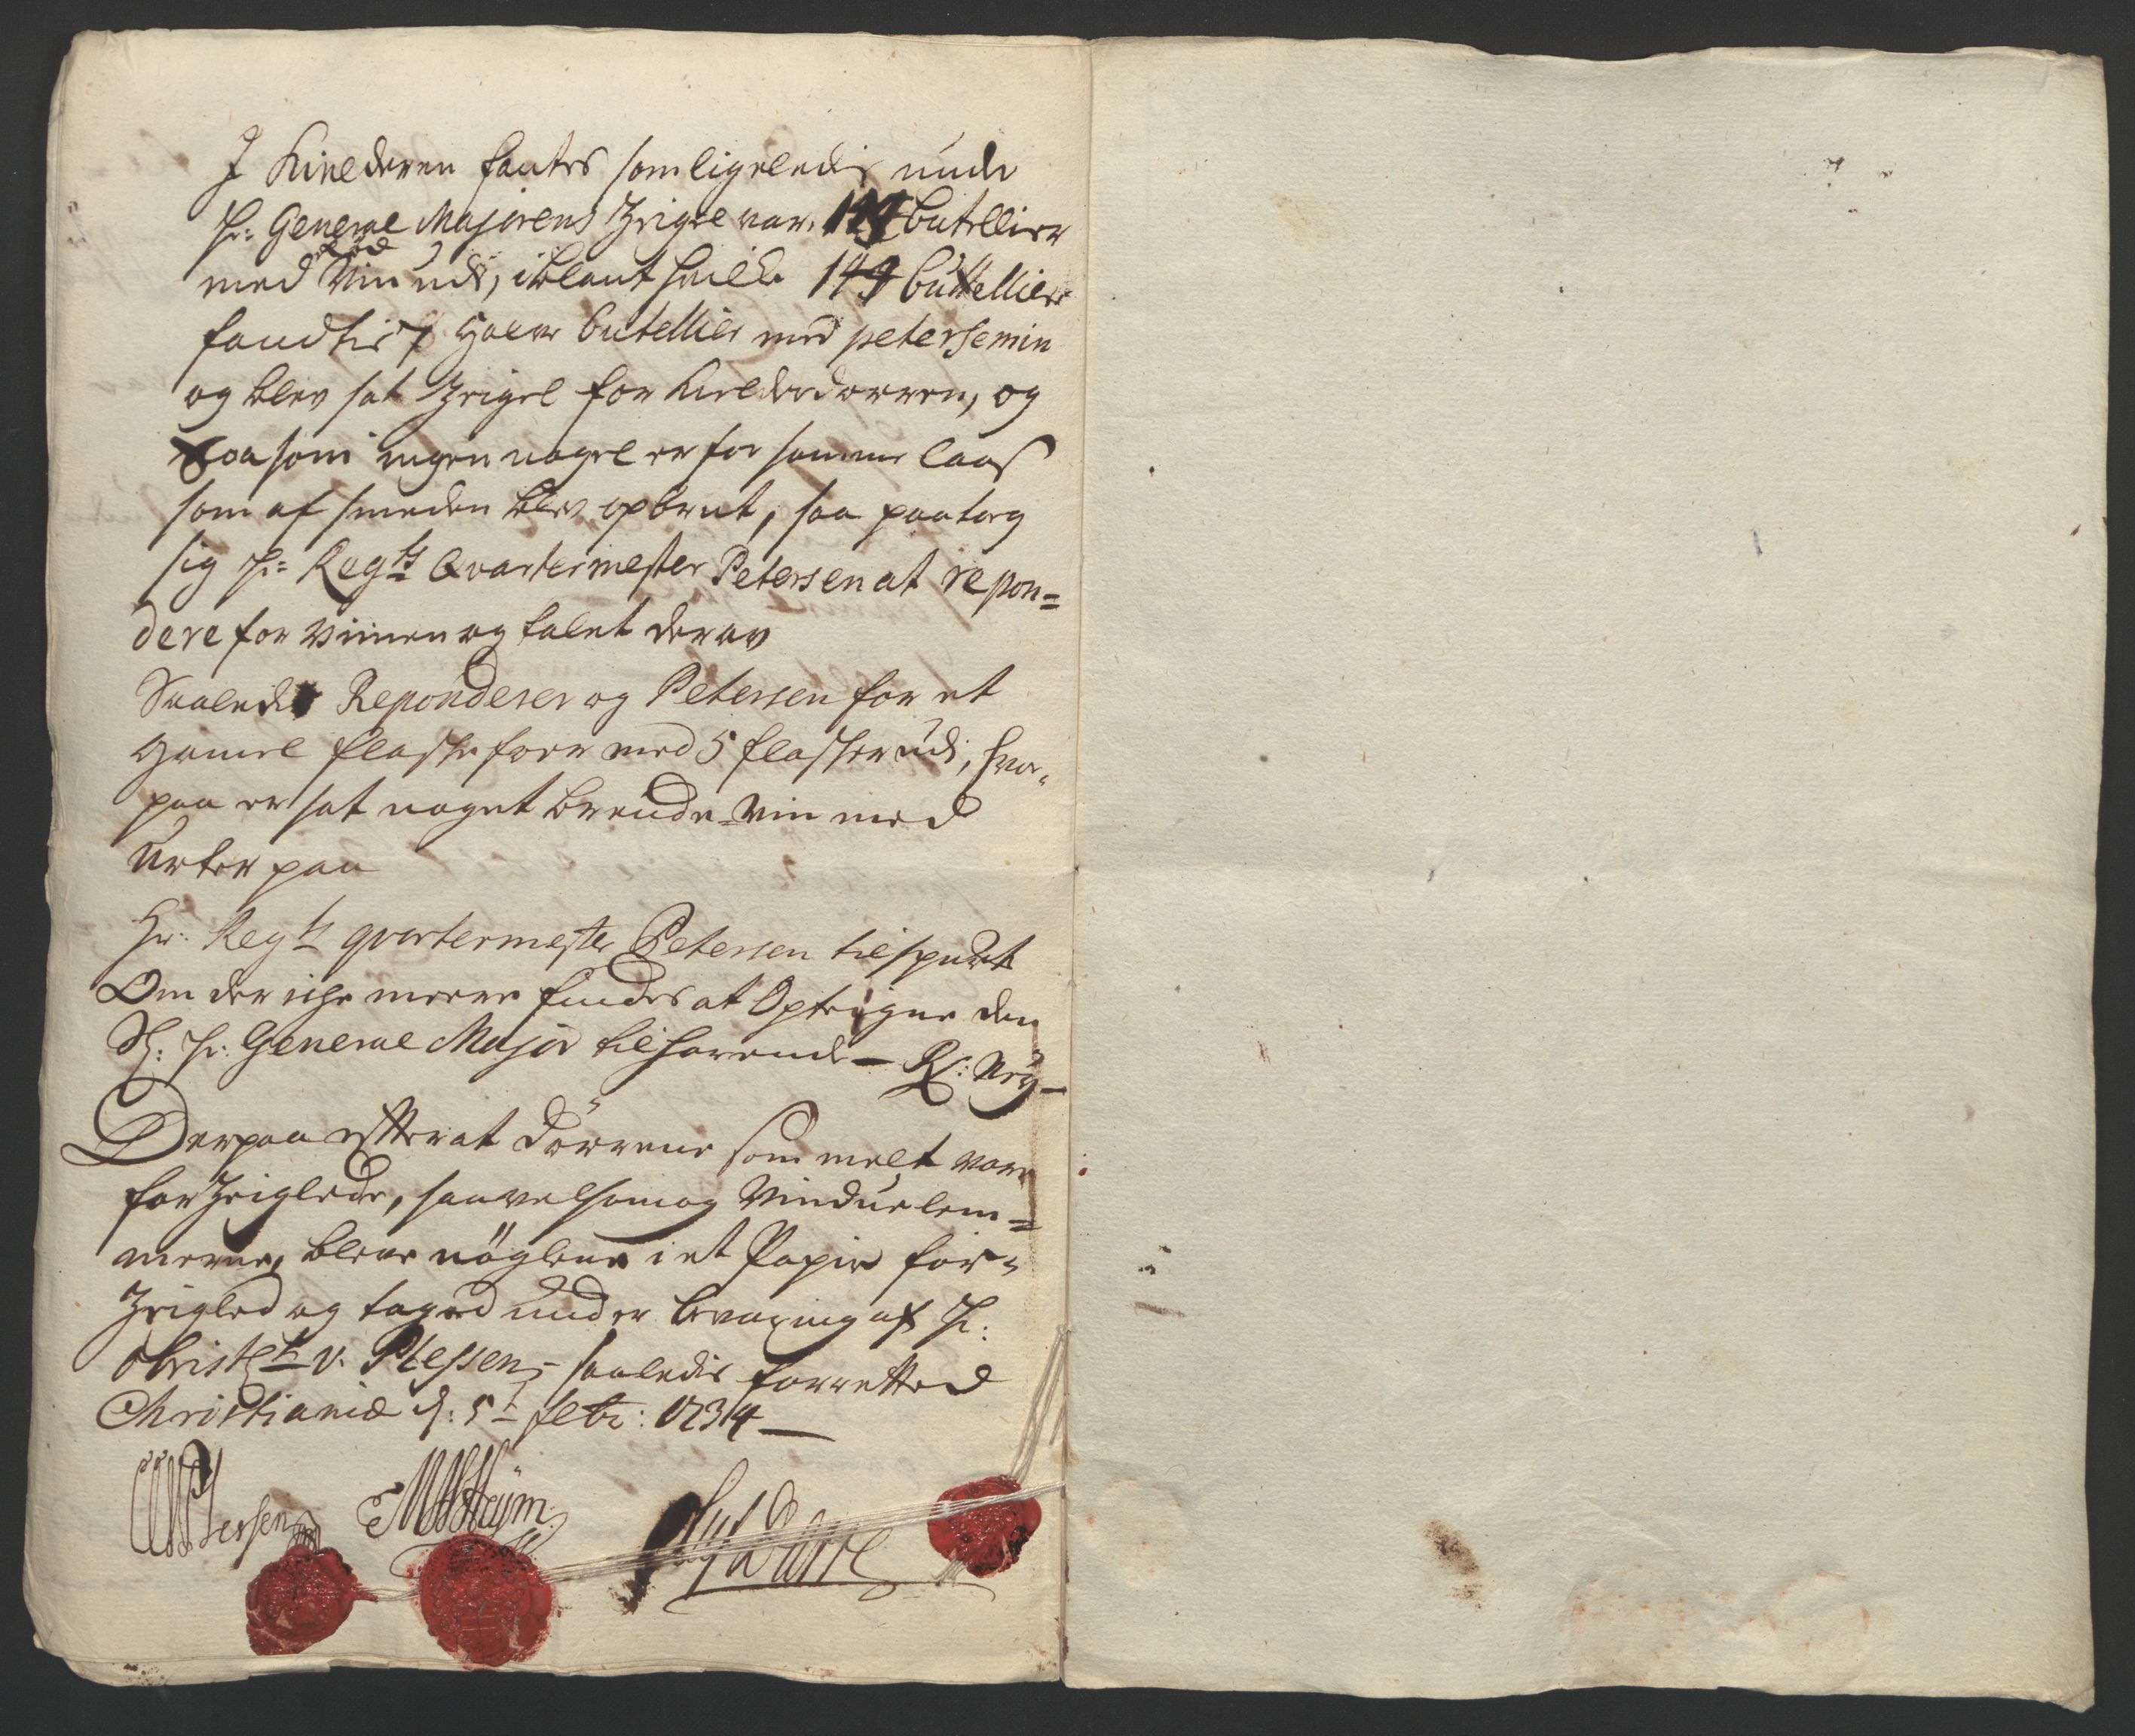 I Kielderen fantes som ligeledis under
Hr: General Majorens Zeigel var, 149 Butellier
med Rød Vin udi, iblant hvilke 149 Butellier
fandtis 7 Halve Butellier med petersemin
og blev sat Zeigel for Kielderdørren, og
saasom ingen nøgel er for samme laas
som af smeden blev opbrut, saa paatog
sig Hr: Regts Qvartermester Petersen at repon=
dere for Viinen og talet derav
Saaledis Reponderer og Petersen for et
gamel flaske foer med 5 flasker udi, hvor-
paa er sat noget brende-Vin med
urter paa
Hr: Regts qvartermester Petersen tilspurt
Om der icke meere findes at Opteigne den
Sl: Hr: General Major tilhørende — Rs: Ney —
Derpaa efter at Dörrene som melt vare
forZeiglede, saavelsom og Vinduelem=
merne, bleve nöglene i et Papir for-
Zeigled og taged under bevaring af Hr:
Obristl: v. Plessen, saaledis forretted
Christiania d: 5t febr: 1734 —
Plessen